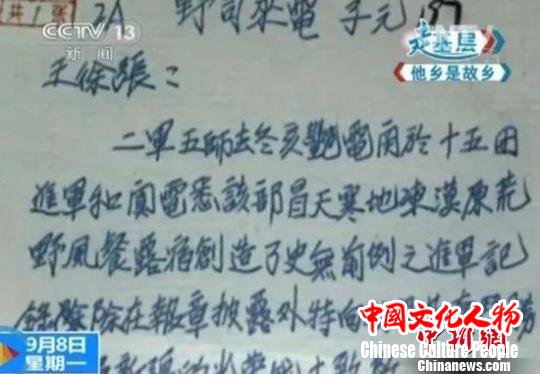 CCTV 13
新闻
共 1 张
野司來電
走基层
他乡是故乡
王徐張：
二軍五師去冬亥艷電関於十五团
進軍和闐電悉該部冒天寒地凍漠原荒
野風餐露宿創造了史無前例之進軍記
錄除除在報章披露外特向
中国文化人物
Chinese Culture People
9月8日
星期一